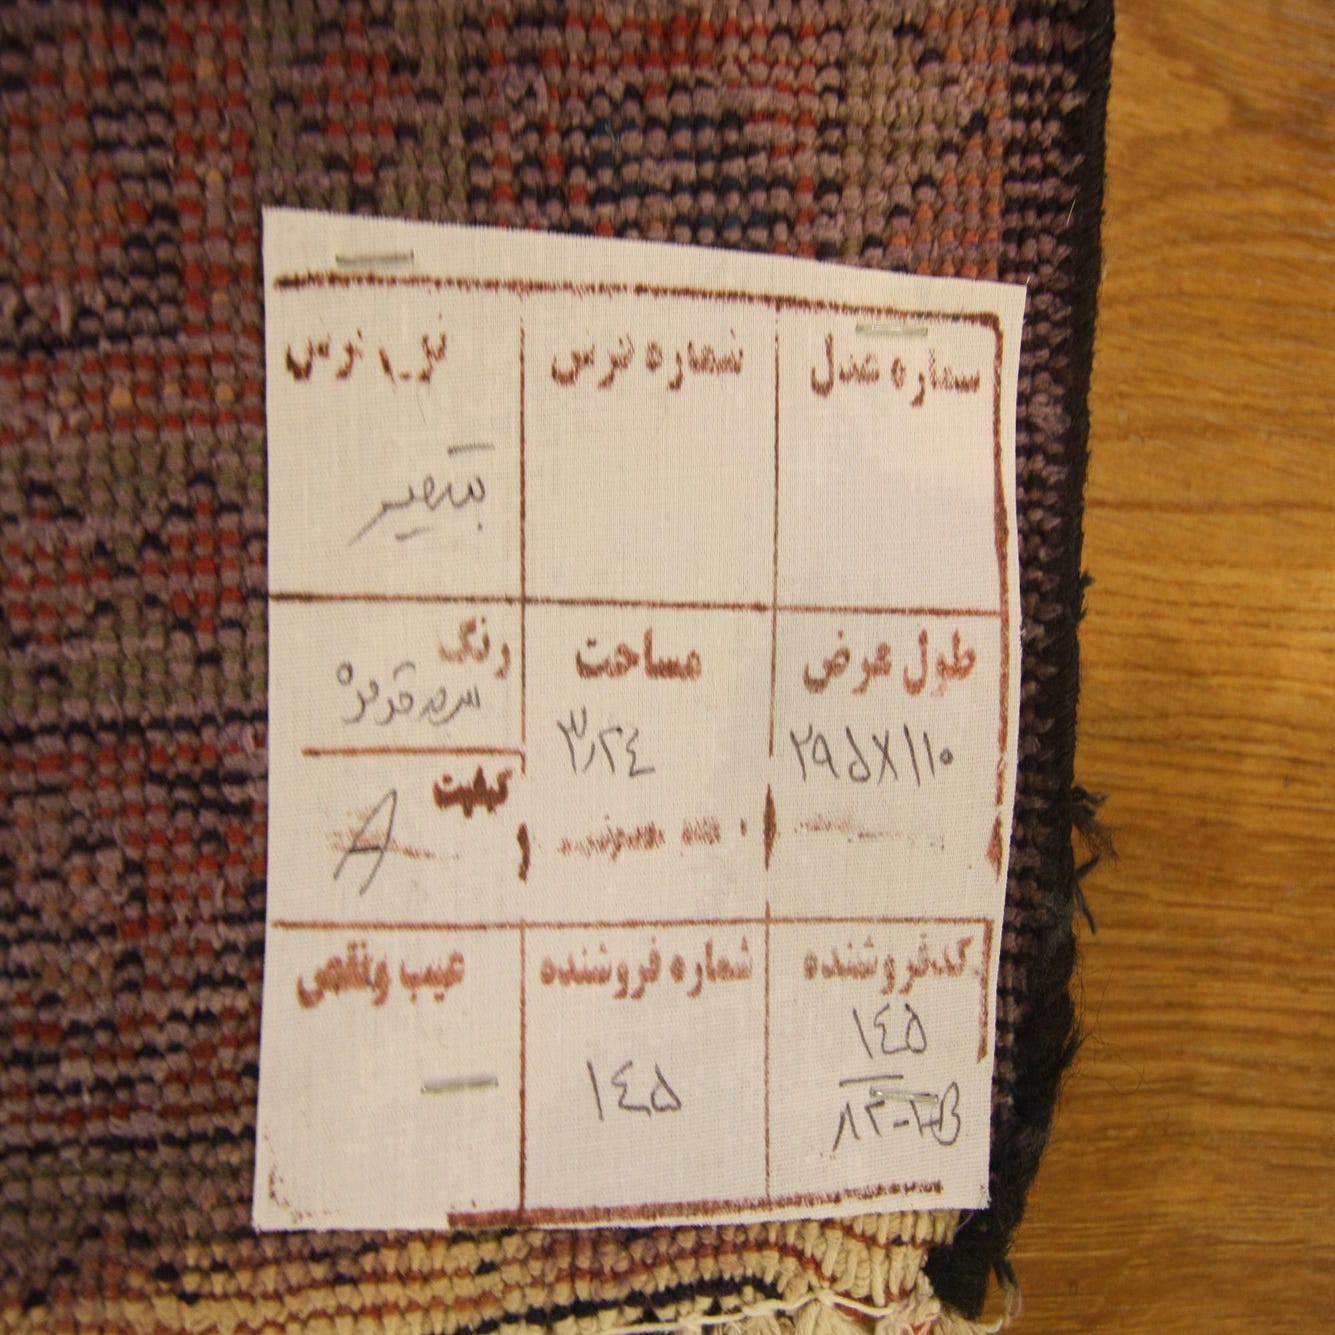 شماره عدل
شماره فرش
طول عرض
۲۹۵X۱۱۰
مساحت
۳٫۲٤
رنگ
سرمه قرمزه
کیفیت
A
کد فروشنده
۱٤۵
شماره فروشنده
۱٤۵
عیب و نقص